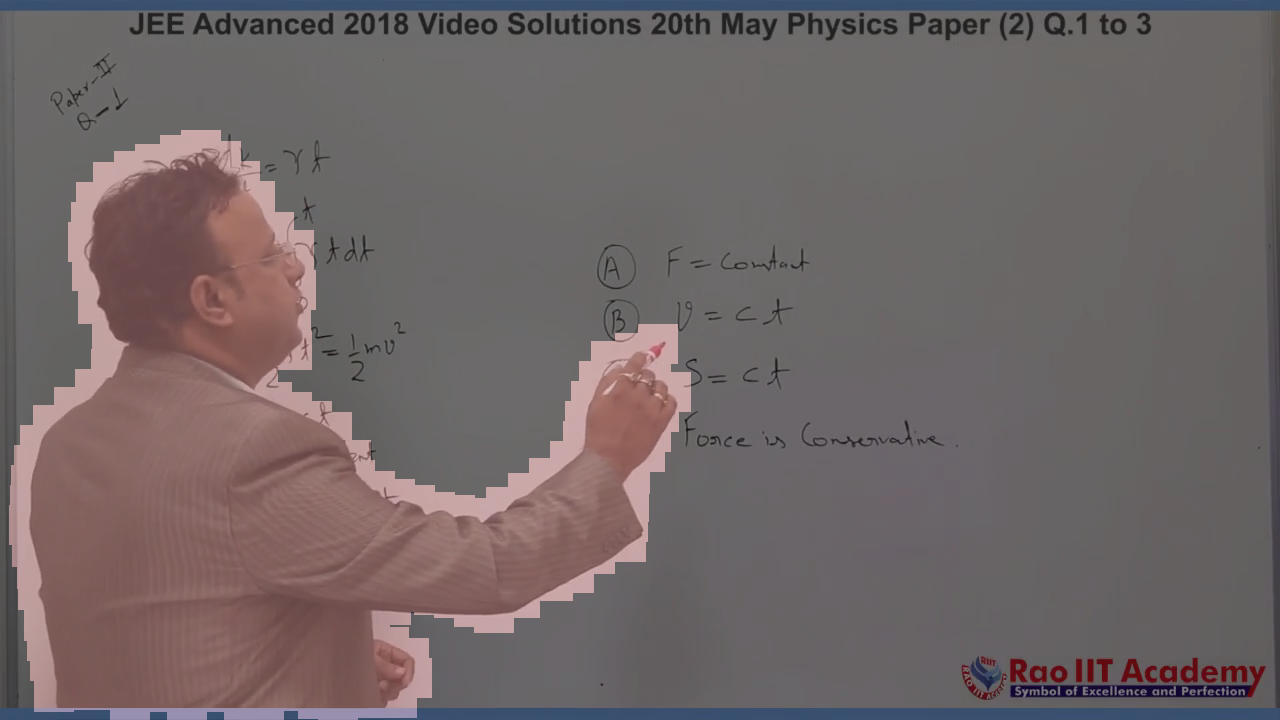 JEE Advanced 2018 Video Solutions 20th May Physics Paper (2) Q.1 to 3
Paper-II
Q-1
= γt
t
γtdt
t² = 1/2 mv²
2
t
ent
t
A F = Constant
B v = ct
S = ct
Force is Conservative.
RIIT
RAO IIT ACADEMY
Rao IIT Academy
Symbol of Excellence and Perfection